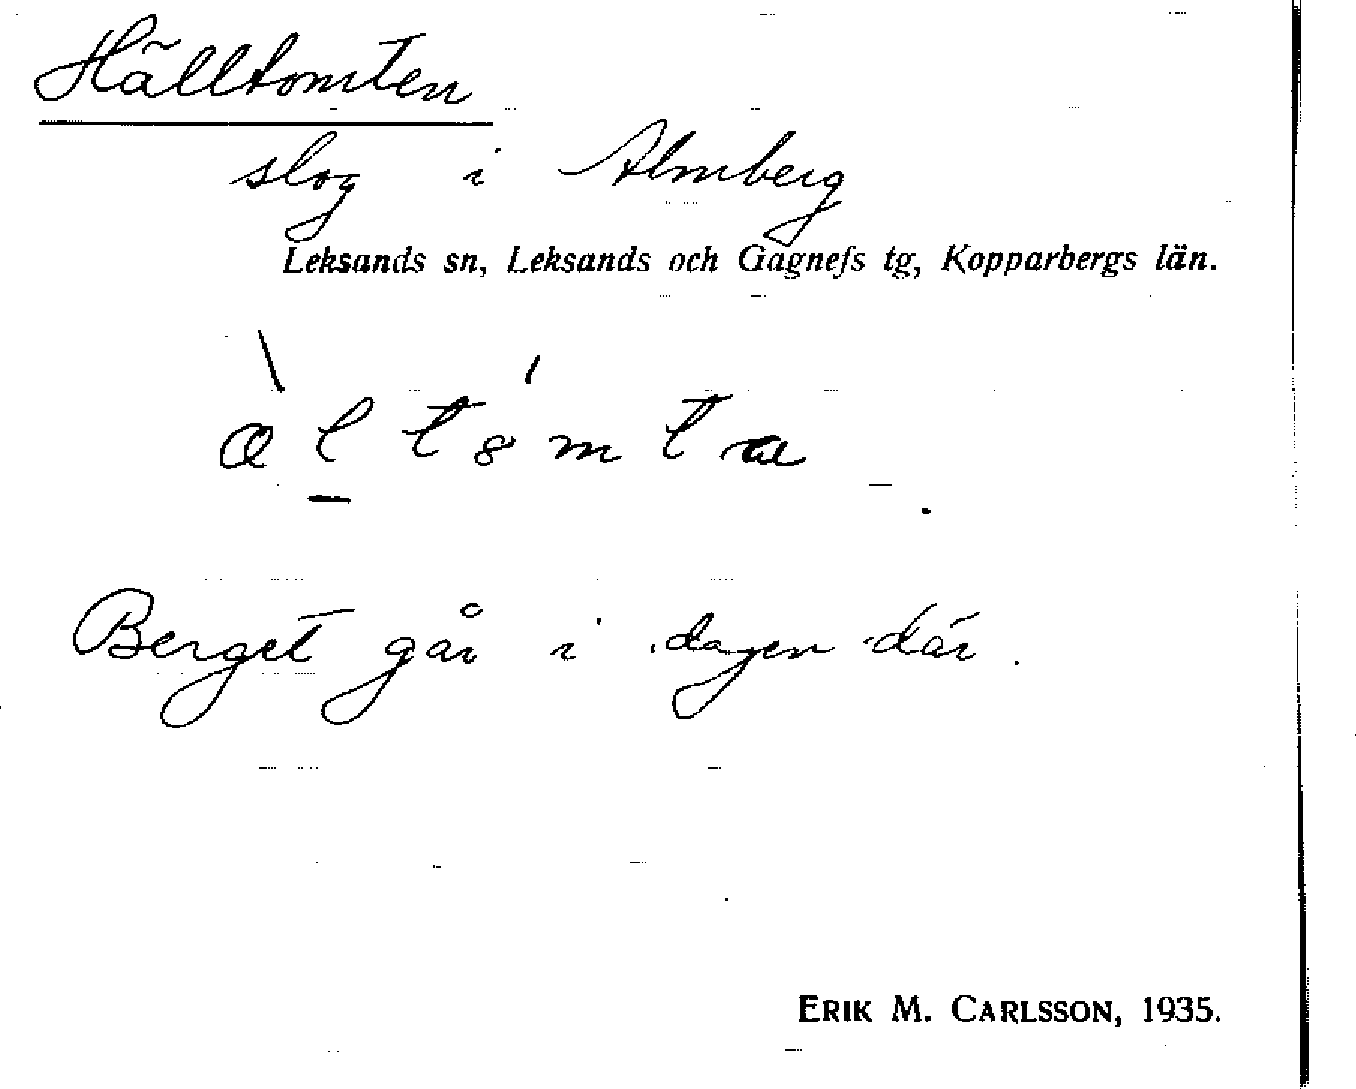 Hälltomten
slog i Almberg
Leksands sn, Leksands och Gagnefs tg, Kopparbergs län.
Berget går i dagen där.
ERIK M. CARLSSON, 1935.